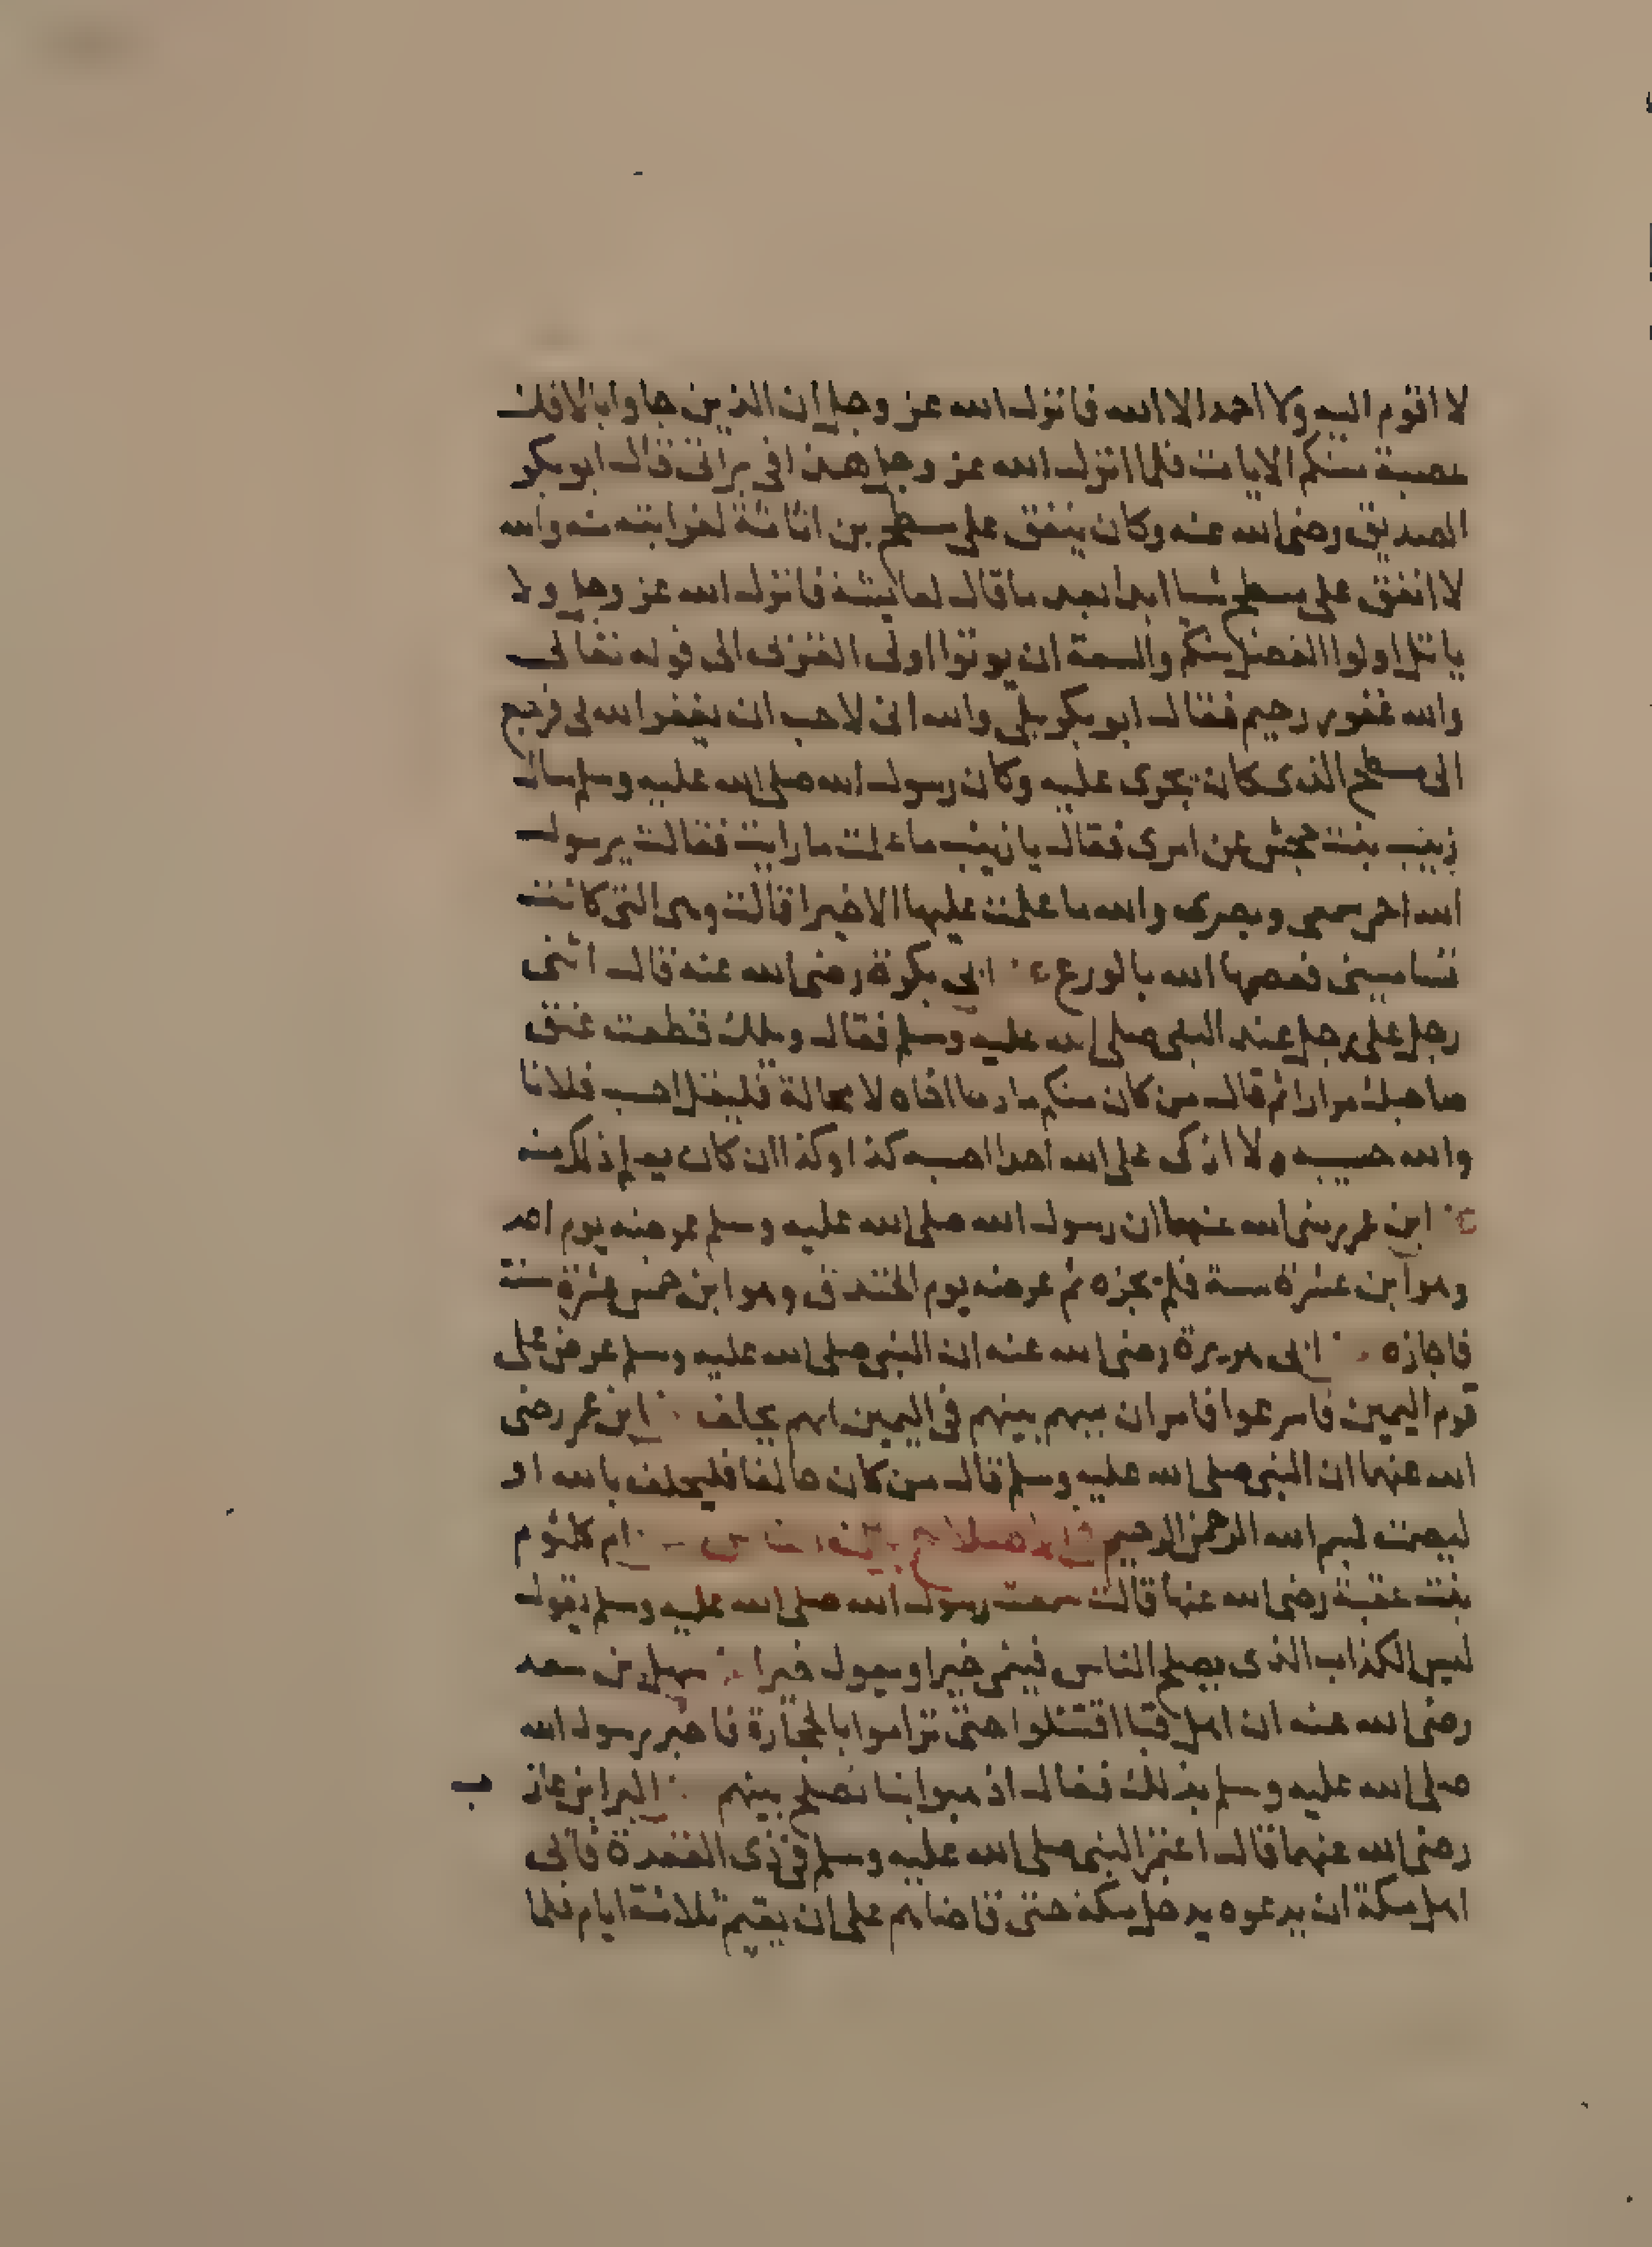 لا اقوم اليه ولا احمد الا الله فانزل الله عز وجل ان الذين جاوا بالافك
عصبة منكم الايات فلما انزل الله عز وجل هذا في براتي قال ابو بكر
الصديق رضي الله عنه وكان ينفق على مسطح بن اثاثة لقرابته منه والله
لا انفق على مسطح شيا ابدا بعد ما قال لعايشة فانزل الله عز وجل ولا
ياتل اولوا الفضل منكم والسعة ان يوتوا اولى القربى الى قوله تعالى
والله غفور رحيم فقال ابو بكر بلى والله اني لاحب ان يغفر الله لي فرجع
الى مسطح الذي كان يجرى عليه وكان رسول الله صلى الله عليه وسلم سال
زينب بنت جحش عن امري فقال يا زينب ما علمت ما رايت فقالت يرسول
الله احمي سمعي وبصري والله ما علمت عليها الا خيرا قالت وهي التي كانت
تساميني فعصمها الله بالورع ابي بكرة رضي الله عنه قال اثنى
رجل على رجل عند النبي صلى الله عليه وسلم فقال ويلك قطعت عنق
صاحبك مرارا ثم قال من كان منكم مادحا اخاه لا محالة فليقل احسب فلانا
والله حسيبه ولا ازكي على الله احدا احسبه كذا وكذا ان كان يعلم ذلك منه
ابن عمر رضي الله عنهما ان رسول الله صلى الله عليه وسلم عرضه يوم احد
وهو ابن عشرة سنة فلم يجزه ثم عرضه يوم الخندق وهو ابن خمس عشرة سنة
فاجازه ابي هريرة رضي الله عنه ان النبي صلى الله عليه وسلم عرض على
قوم اليمين فاسرعوا فامر ان يسهم بينهم في اليمين ايهم يحلف ابن عمر رضي
الله عنهما ان النبي صلى الله عليه وسلم قال من كان حالفا فليحلف بالله او
ليصمت بسم الله الرحمن الرحيم ام كلثوم
بنت عقبة رضي الله عنها قالت سمعت رسول الله صلى الله عليه وسلم يقول
ليس الكذاب الذي يصلح الناس فينمي خيرا ويقول خيرا سهل بن سعد
رضي الله عنه ان اهل قبا اقتتلوا حتى تراموا بالحجارة فاخبر رسول الله
صلى الله عليه وسلم بذلك فقال اذهبوا بنا نصلح بينهم البرا بن عازب
رضي الله عنهما قال اعتمر النبي صلى الله عليه وسلم في ذي القعدة فابى
اهل مكة ان يدعوه يدخل مكة حتى قاضاهم على ان يقيم ثلاثة ايام فلما